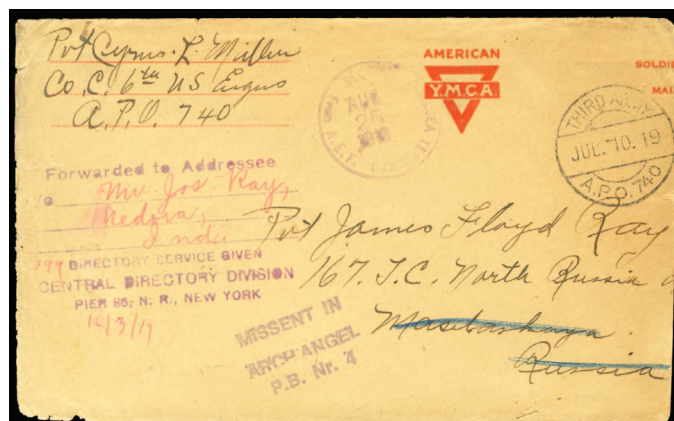 Pvt Cyrus. L. Miller
Co. C. 6th US Engrs
A.P.O. 740
AMERICAN
Y.M.C.A.
SOLDIE
MAI
AUG
25
A.E.F.
THIRD ARMY
JUL. 10. 19
A.P.O. 740
Forwarded to Addressee
Mr. Jos Ray,
Medora,
Ind.
799 DIRECTORY SERVICE GIVEN
CENTRAL DIRECTORY DIVISION
PIER 86, N. R., NEW YORK
10/3/19
Pvt James Floyd Ray
167. T.C. North Russia
Russia
MISSENT IN
ARCHANGEL
P.B. Nr. 4